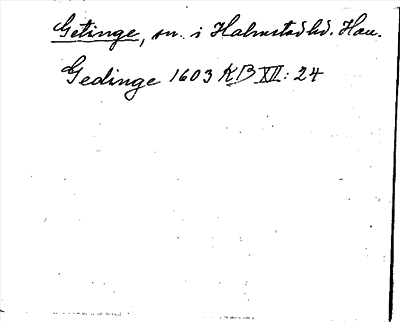 Getinge, sn. i Halmstad hd. Hall.
Gedinge 1603 KB XII: 24